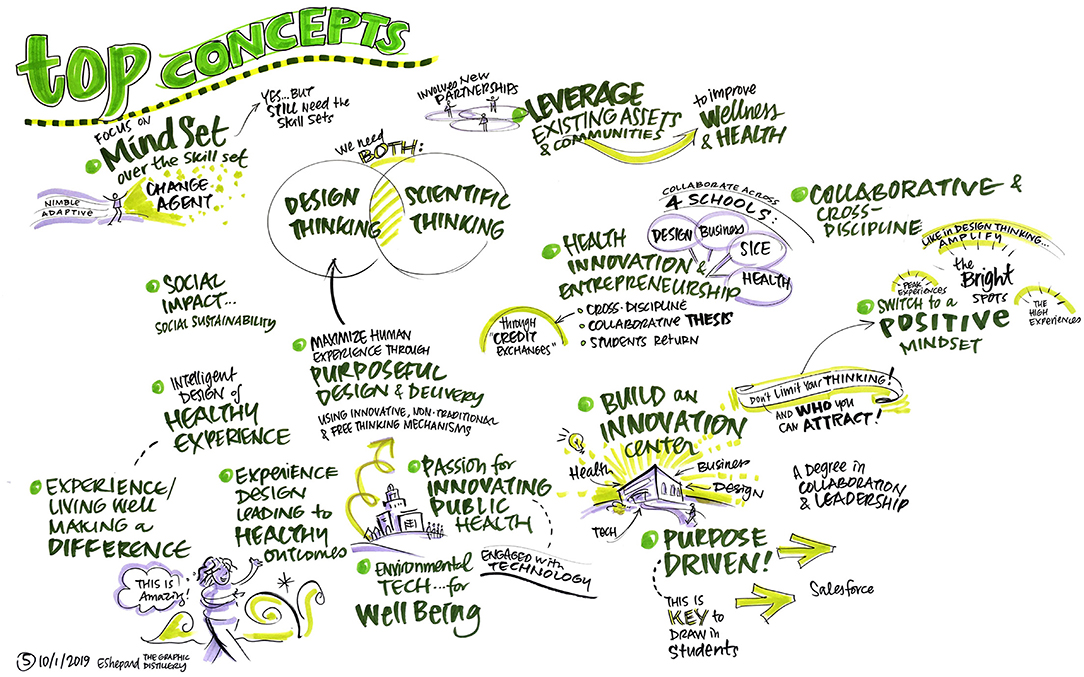 top CONCEPTS
FOCUS ON
MindSet
over the skill set
YES...BUT
STILL Need the
Skill Sets
NIMBLE
ADAPTIVE
CHANGE
AGENT
INVOLVED New
PARTNERSHIPS
LEVERAGE
EXISTING ASSETS
& COMMUNITIES
to improve
Wellness
& HEALTH
We need
BOTH:
DESIGN
THINKING
SCIENTIFIC
THINKING
COLLABORATE ACROSS
4 SCHOOLS:
DESIGN
Business
SICE
HEALTH
COLLABORATIVE &
CROSS-
DISCIPLINE
HEALTH
INNOVATION &
ENTREPRENEURSHIP
• CROSS-DISCIPLINE
• COLLABORATIVE THESIS
• STUDENTS RETURN
through
"CREDIT
EXCHANGES"
LIKE in DESIGN THINKING...
AMPLIFY
the
Bright
SPOTS
PEAK
EXPERIENCES
THE
HIGH
EXPERIENCES
SWITCH to a
POSITIVE
MINDSET
SOCIAL
IMPACT...
SOCIAL SUSTAINABILITY
MAXIMIZE HUMAN
EXPERIENCE THROUGH
PURPOSEFUL
DESIGN & DELIVERY
USING INNOVATIVE, NON-TRADITIONAL
& FREE THINKING MECHANISMS
Don't Limit Your THINKING!
AND WHO you
CAN ATTRACT!
INtelligent
DESIGN of
HEALTHY
EXPERIENCE
BUILD an
INNOVATION
center
Health
Business
Design
TECH
A DEGREE in
COLLABORATION
& LEADERSHIP
EXPERIENCE/
LIVING Well
MAKING a
DIFFERENCE
EXPERIENCE
DESIGN
LEADING to
HEALTHY
outcomes
PASSION for
INNOVATING
PUBLIC
HEALTH
ENGAGED with
TECHNOLOGY
ENVIRONMENTAL
TECH...for
Well Being
PURPOSE
DRIVEN!
THIS IS
KEY to
DRAW in
Students
Salesforce
THIS IS
Amazing!
5 10/1/2019 EShepard THE GRAPHIC
DISTILLERY